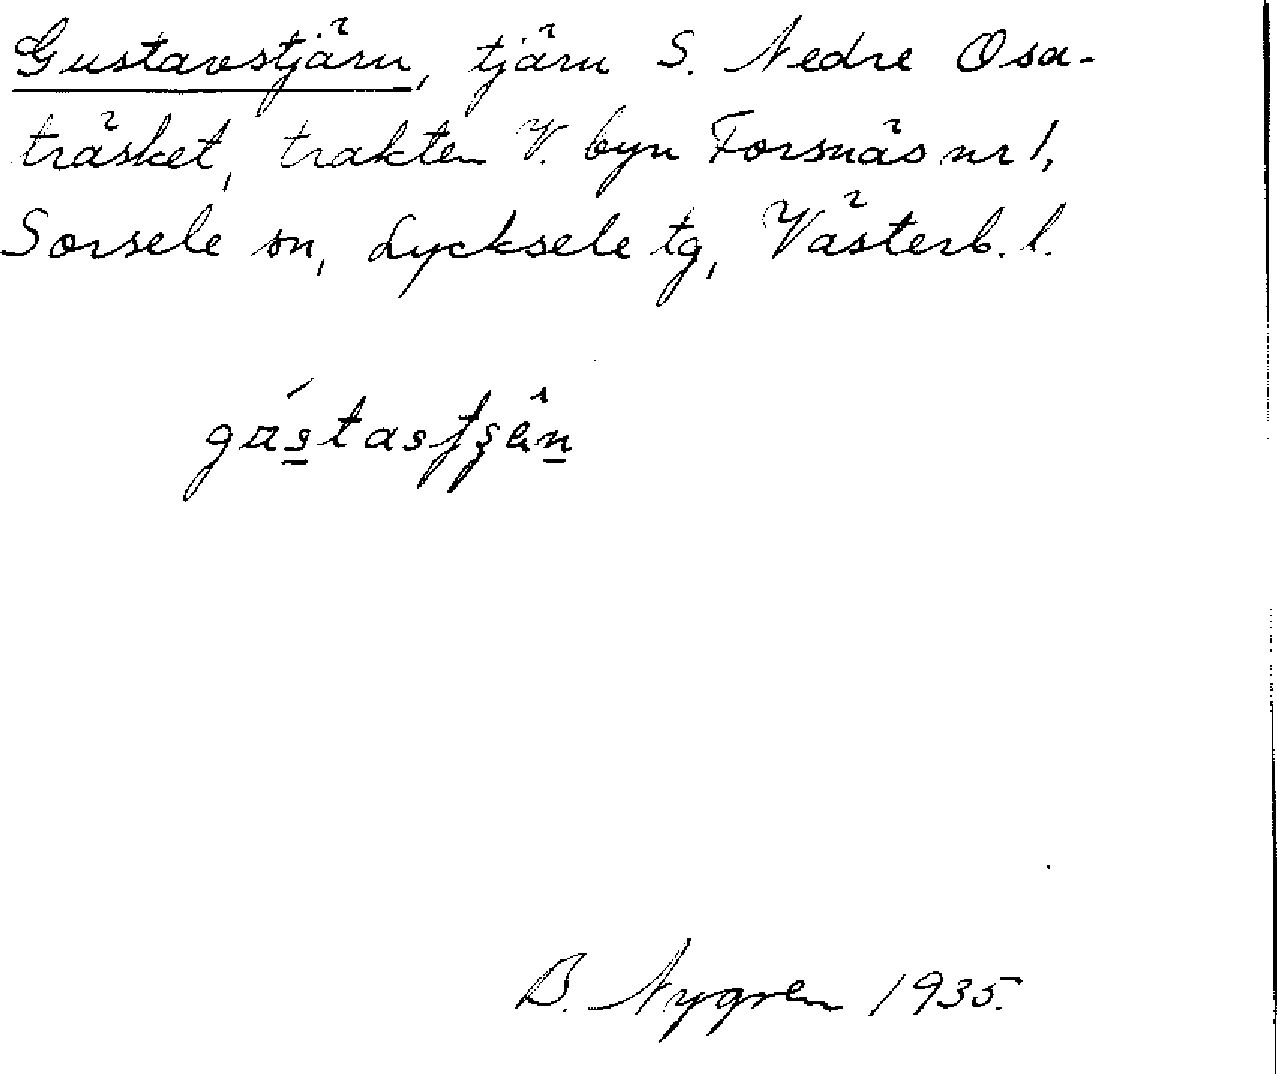 Gustavstjärn, tjärn S. Nedre Osa-
träsket, trakten V. byn Forsnäs nr 1,
Sorsele sn, Lycksele tg, Västerb. l.
B. Nygren 1935.